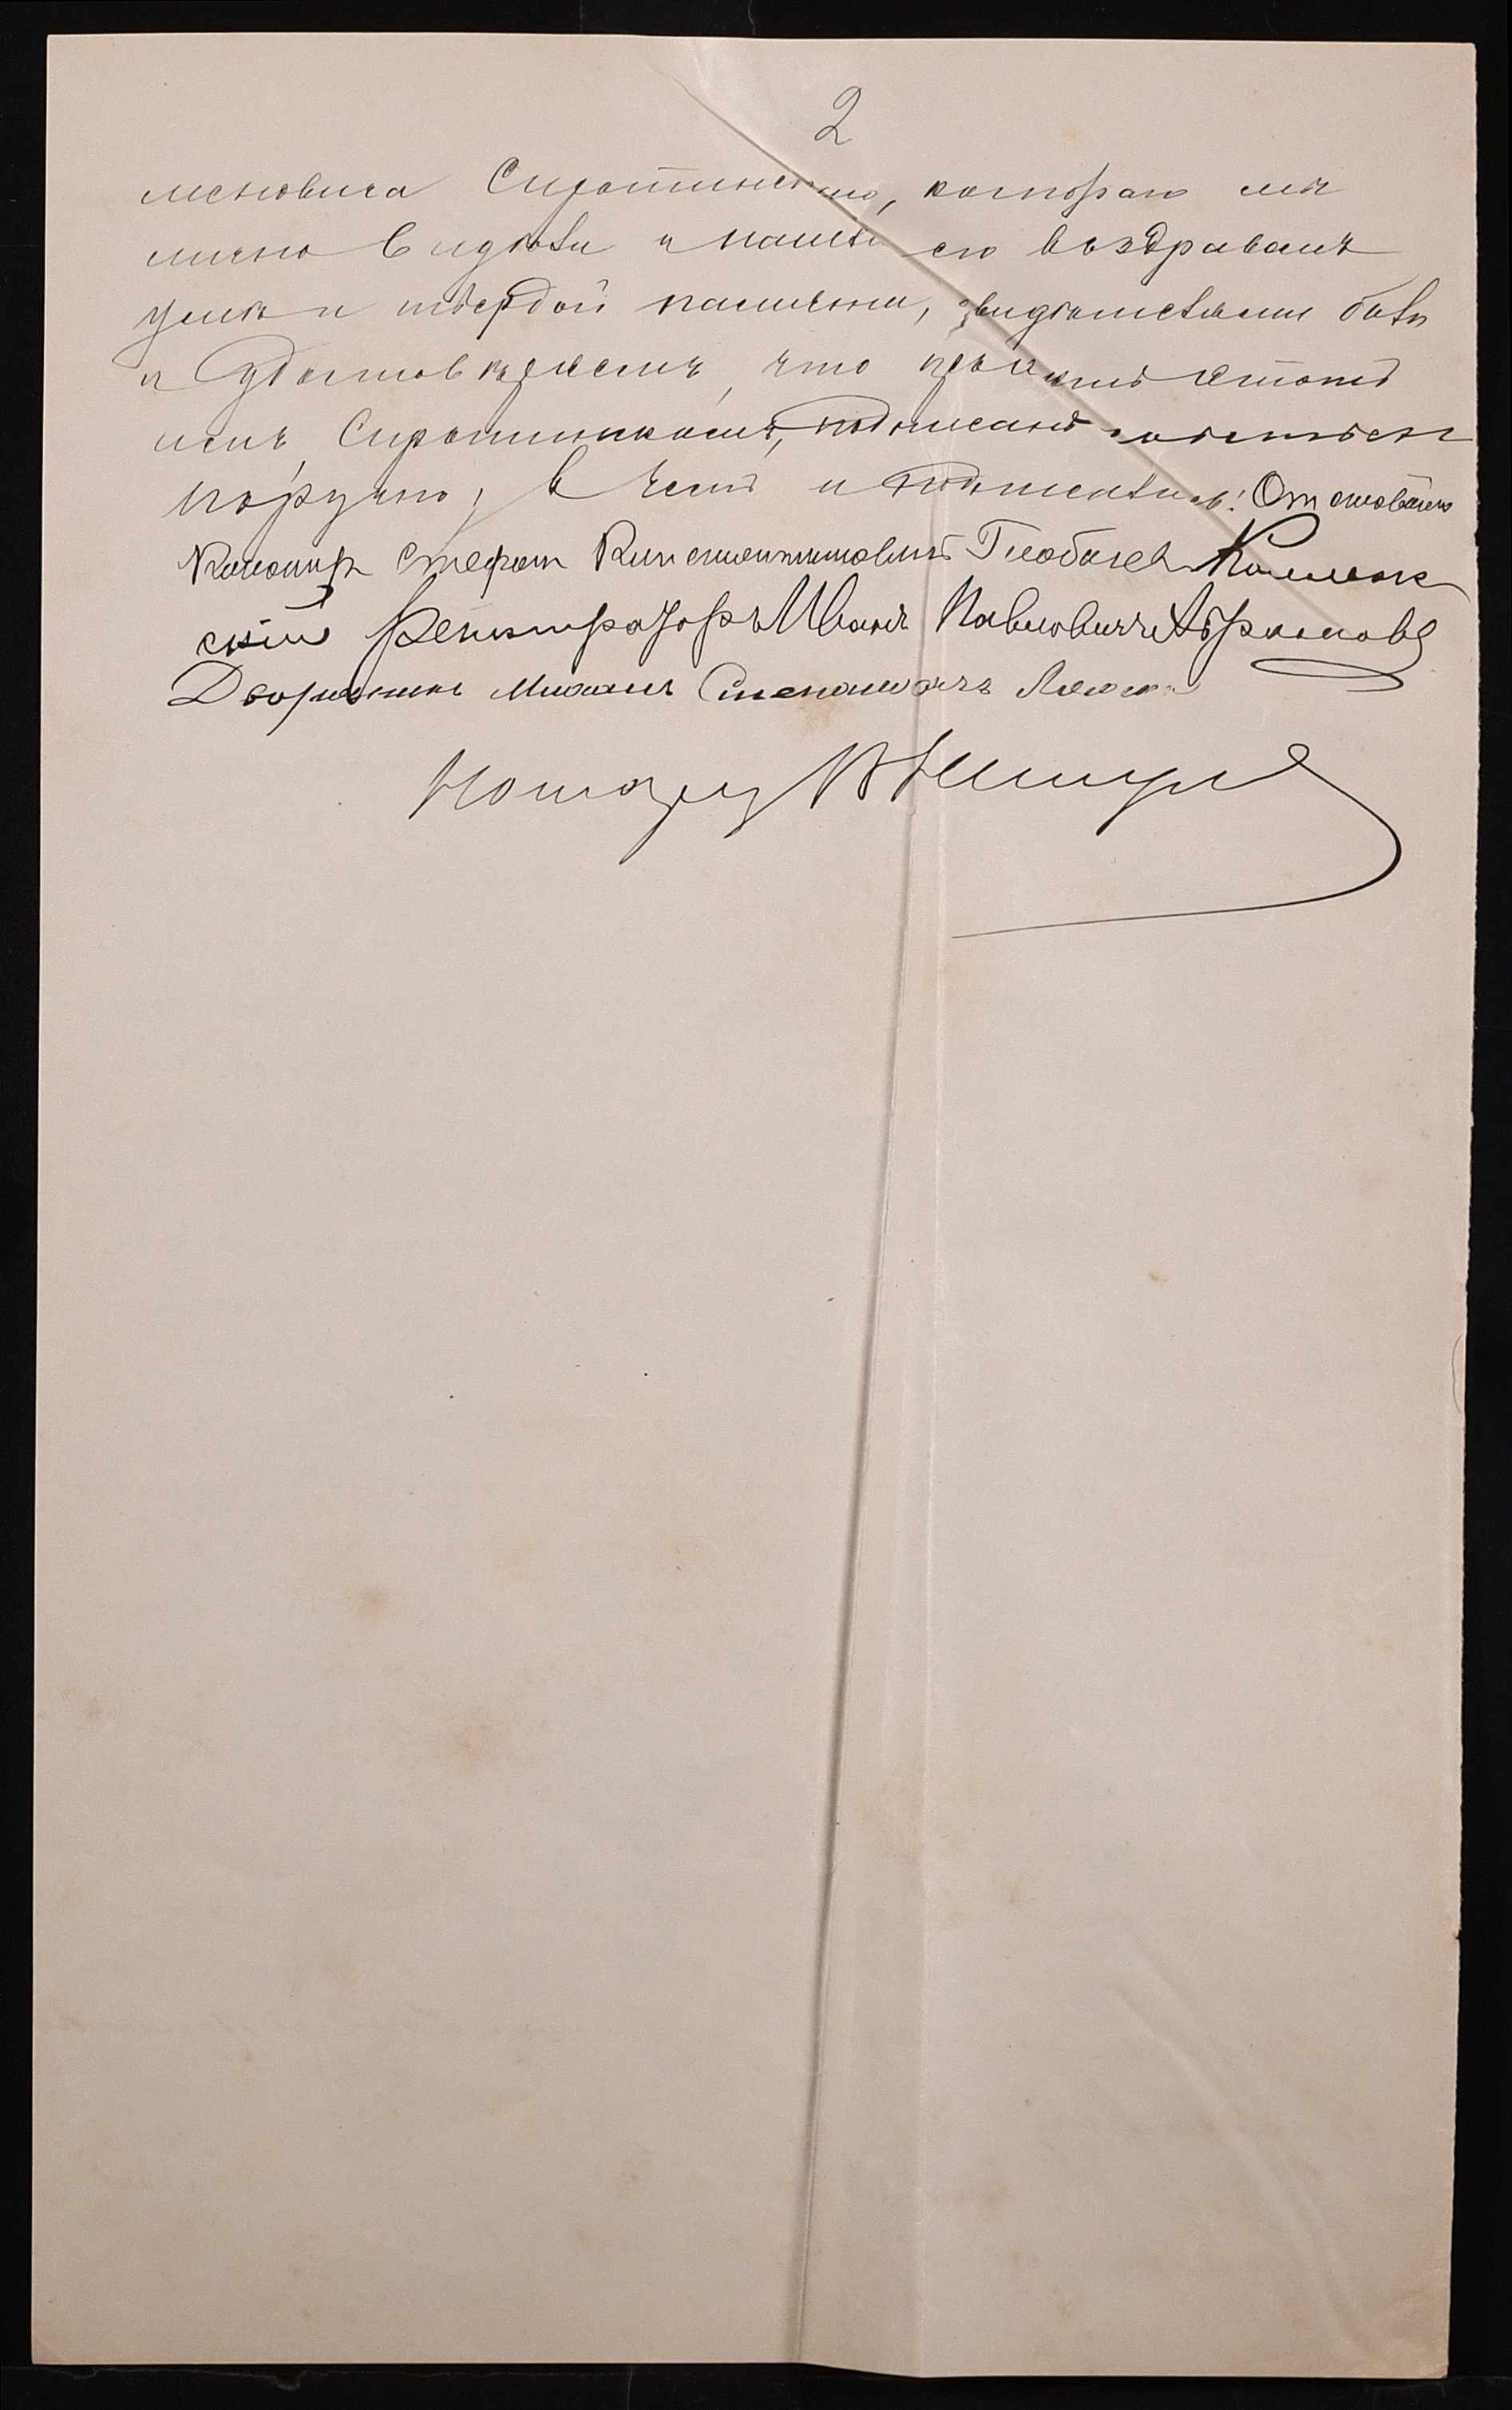 2
меновича Сиротинскаго, котораго мы
лично видѣли и нашли его въ здравомъ
умѣ и твердой памяти, свидѣтелями были
и удостовѣряемъ, что проектъ этотъ
имъ, Сиротинскимъ, подписанъ собствен
норучно, въ чемъ и подписались: Отставной
Канониръ Стефанъ Константиновичъ Коллеж
скій Регистраторъ Иванъ Павловичъ Абрамовъ
Дворянинъ Михаилъ Степановичъ
Нотаріусъ